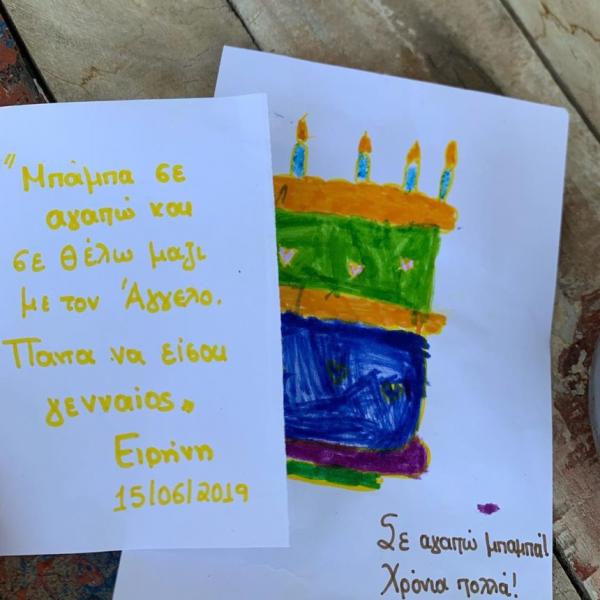 "Μπάμπα σε
αγαπώ και
σε θέλω μαζι
με τον Άγγελο.
Παντα να είσαι
γενναίος"
Ειρήνη
15/06/2019
Σε αγαπώ μπαμπά!
Χρόνια πολλά!